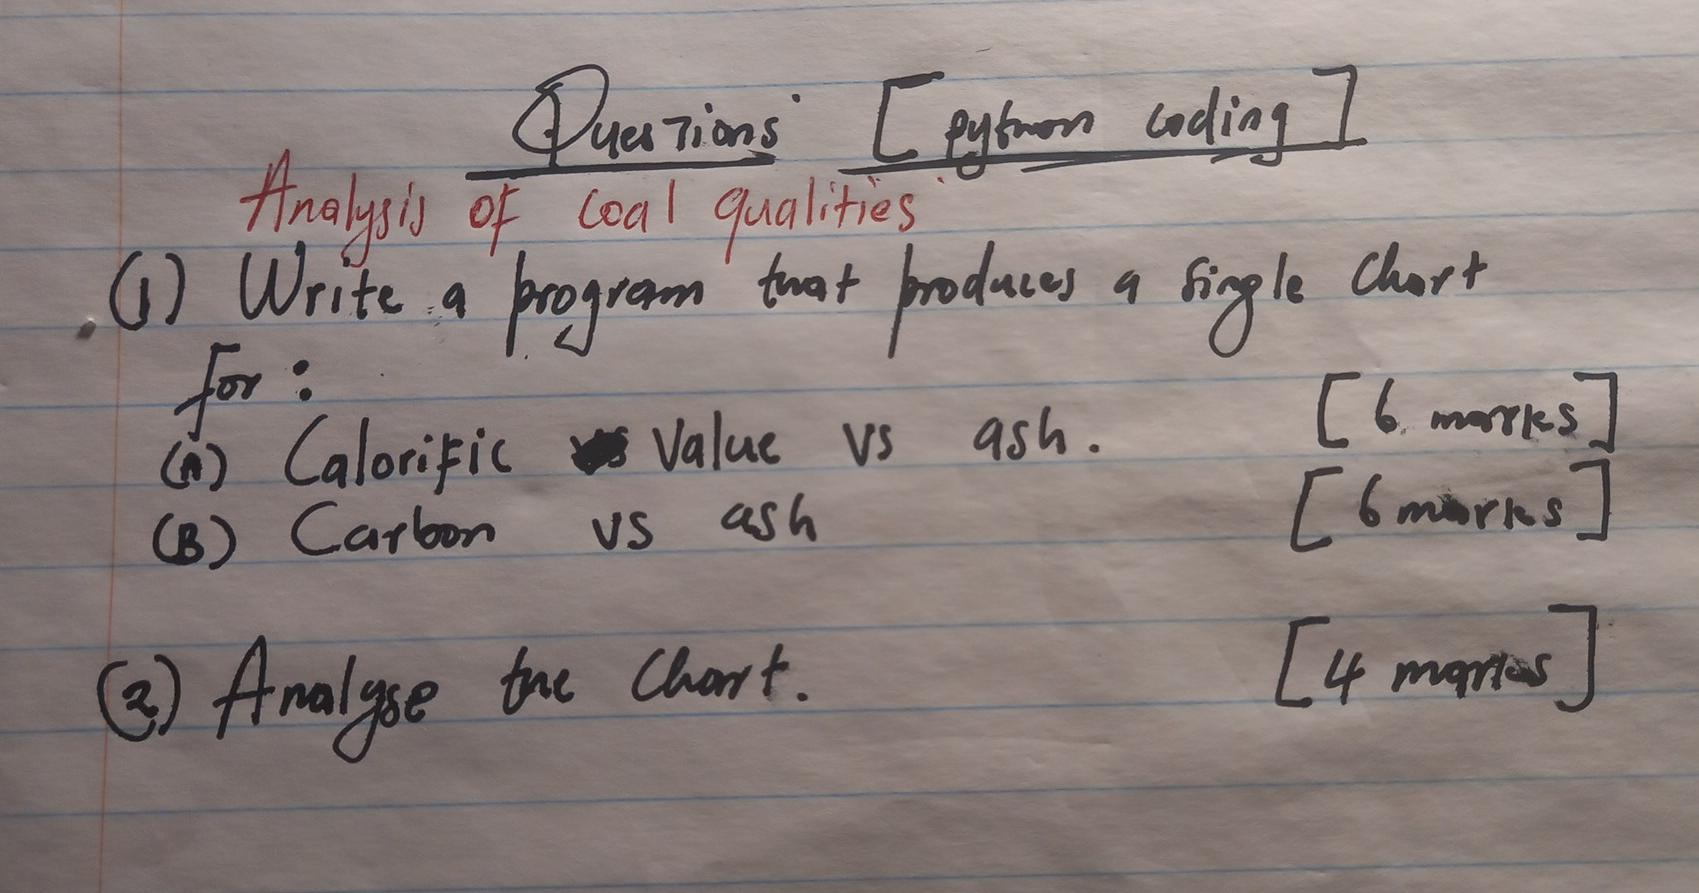 Questions [python coding]
Analysis of coal qualities
(1) Write a program that produces a single chart
for:
(A) Calorific Value vs ash. [6 marks]
(B) Carbon vs ash [6 marks]
(2) Analyse the chart. [4 marks]